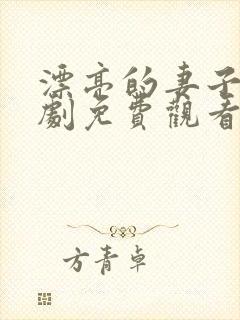 漂亮的妻子
劇免費觀看
方青卓